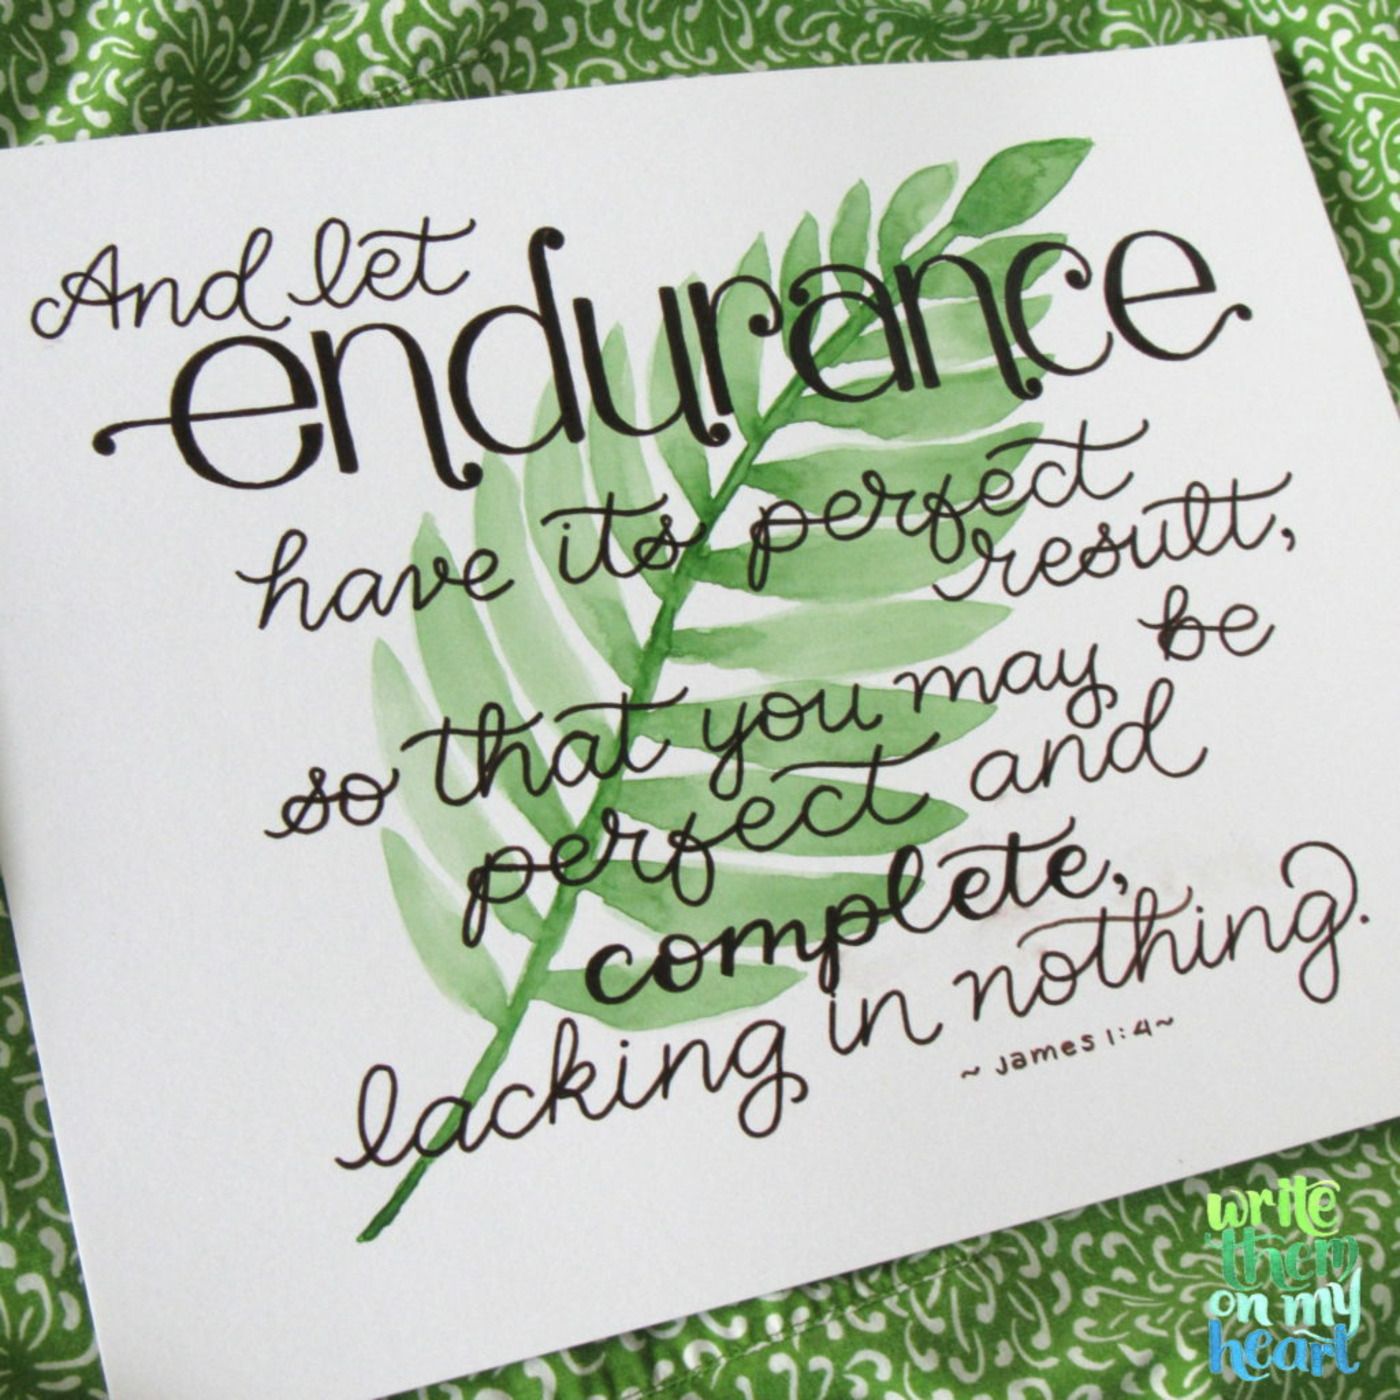 And let
endurance
have its perfect
result,
so that you may be
perfect and
complete,
lacking in nothing.
~ James 1:4 ~
write
them
on my
heart